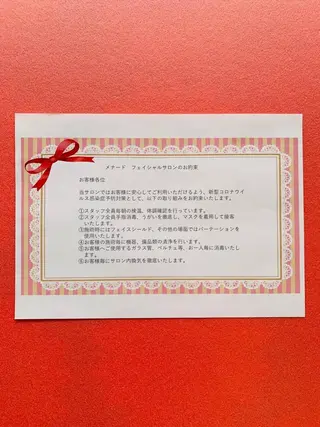 メナード　フェイシャルサロンのお約束
お客様各位
当サロンではお客様に安心してご利用いただけるよう、新型コロナウイ
ルス感染症予防対策として、以下の取り組みをお約束いたします。
①スタッフ全員毎朝の検温、体調確認を行っています。
②スタッフ全員手指消毒、うがいを徹底し、マスクを着用して接客
いたします。
③施術時にはフェイスシールド、その他の場面ではパーテーションを
使用いたします。
④お客様の施術毎に機器、備品類の清浄を行います。
⑤お客様へご使用するガラス管、ベルチェ等、お一人毎に消毒いたし
ます。
⑥お客様毎にサロン内換気を徹底いたします。